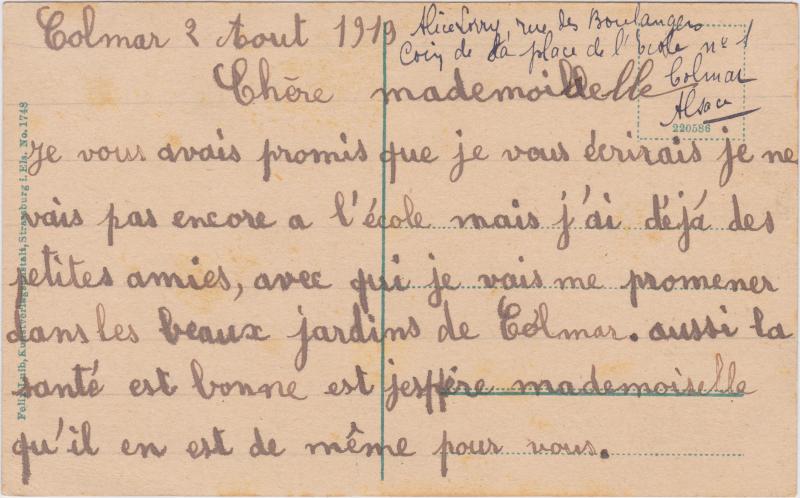 Colmar 2 Aout 1919
Alice Lorry, rue des Boulangers
Coin de la place de l'école n° 1
Colmar
Alsace
220586
Chère mademoiselle
Je vous avais promis que je vous écrirais je ne
vais pas encore a l'école mais j'ai déjá des
petites amies, avec qui je vais me promener
dans les beaux jardins de Colmar. aussi la
santé est bonne est jespère mademoiselle
qu'il en est de même pour vous.
Felix Luib, Kunstverlagsanstalt, Strassburg i. Els. No. 1748